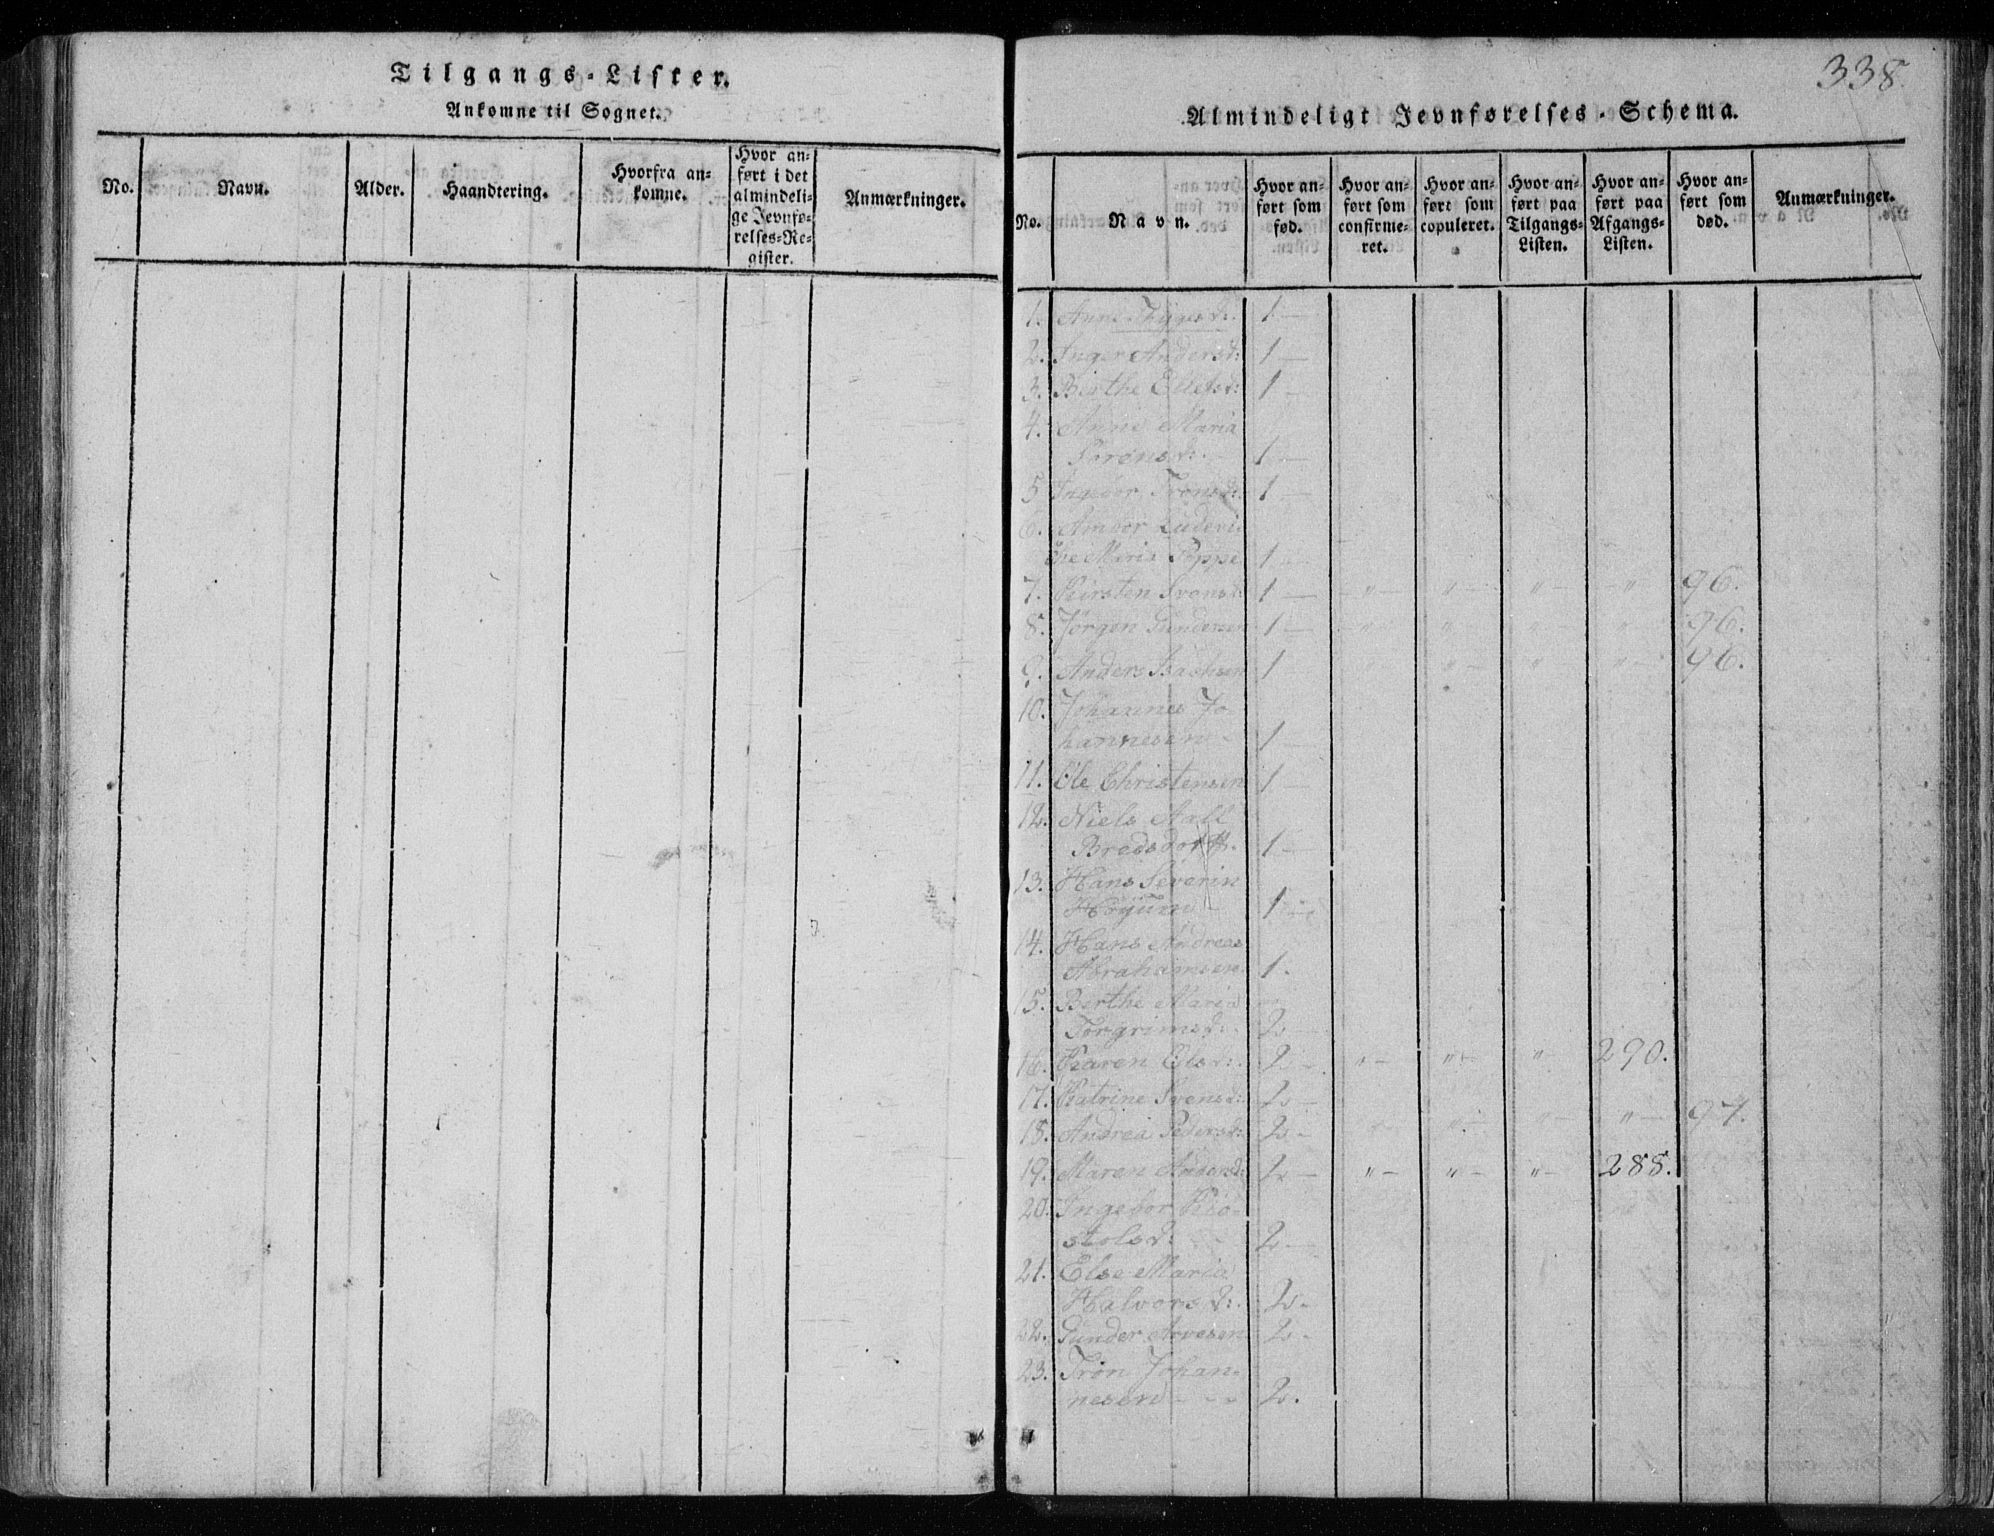 Tilgangs-Lister.
Ankomne til Sognet.
No.
Navn.
Alder.
Haandtering.
Hvorfra an-
komne.
Hvor an-
ført i det
almindeli-
ge Jevnfø-
relses-Re-
gister.
Anmærkninger.
338
Almindeligt Jevnførelses-Schema.
No.
Navn.
Hvor an-
ført som
fød.
Hvor an-
ført som
confirme-
ret.
Hvor an-
ført som
copuleret.
Hvor an-
ført paa
Tilgangs-
Listen.
Hvor an-
ført paa
Afgangs-
Listen.
Hvor an-
ført som
død.
Anmærkninger.
1. Anne Thygesd: 1 —
2. Inger Andersd: 1 —
3. Berthe Ellefsd: 1 —
4. Anne Maria
Sörensd: - 1 —
5 Ingebor Tronsd: 1 —
6. Ambor Ludevi-
che Maria Poppe 1 —
7. Kirsten Svensd: 1 — " — " — " — " 96.
8. Jörgen Gundersen 1 — " " " " 96.
9. Anders Isachsen 1 " " — " " — 96.
10. Johannes Jo-
hannesen - 1 —
11. Ole Christensen 1 —
12. Niels Aall
Bredsdorff. 1 —
13. Hans Severin
Höyum 1 —
14. Hans Andreas
Abrahamsen 1.
15. Berthe Maria
Torgrimsd: 2 —
16. Karen Olsd: 2 — " — " — " 290.
17. Katrine Svensd: 2 —
18. Andrea Pedersd: 2 - " — " — " — " — 97.
19. Maren Andersd: 2 — " — " — " — 288.
20. Ingebor Kio-
stolsd: 2 —
21. Else Maria
Halvorsd: 2 -
22. Gunder Arvesen 2 -
23. Tron Johan-
nesen - - - 2.